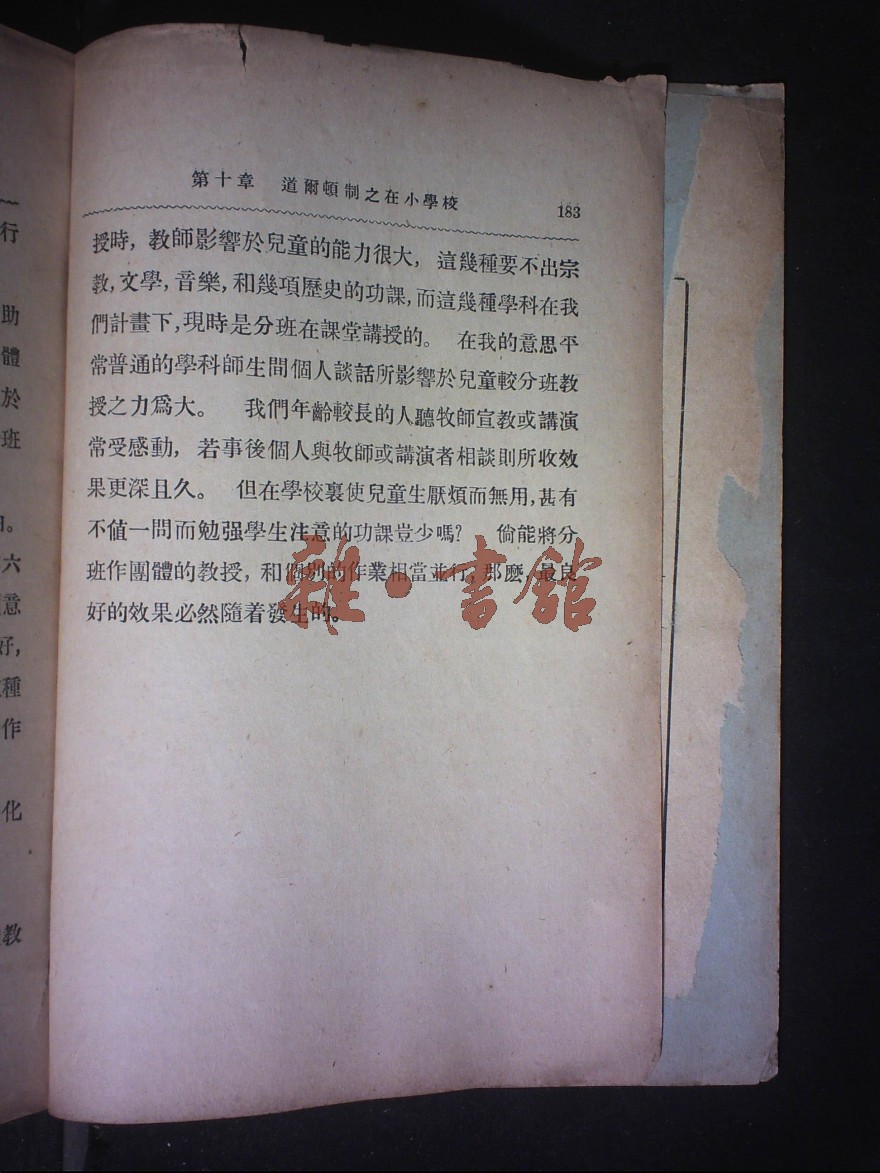 第十章 道爾頓制之在小學校 183
授時，教師影響於兒童的能力很大，這幾種要不出宗
教，文學，音樂，和幾項歷史的功課，而這幾種學科在我
們計畫下，現時是分班在課堂講授的。 在我的意思平
常普通的學科師生間個人談話所影響於兒童較分班教
授之力爲大。 我們年齡較長的人聽牧師宣教或講演
常受感動，若事後個人與牧師或講演者相談則所收效
果更深且久。 但在學校裏使兒童生厭煩而無用，甚有
不値一問而勉强學生注意的功課豈少嗎？ 倘能將分
班作團體的教授，和個別的作業相當並行，那麽，最良
好的效果必然隨着發生的。
雜·書館
行
助
體
於
班
。
六
意
好，
種
作
化
教